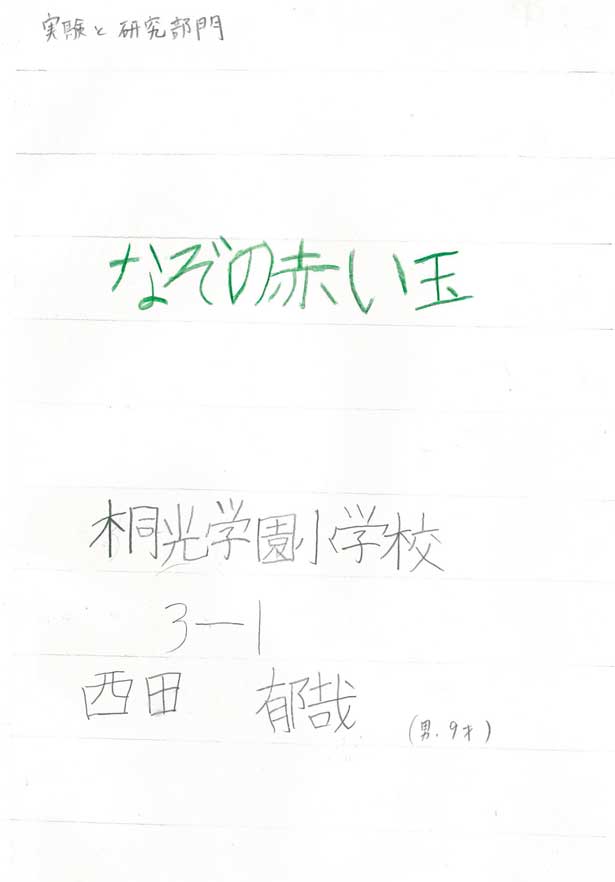 実験と研究部門
なぞの赤い玉
桐光学園小学校
3-1
西田 郁哉 (男.9才)